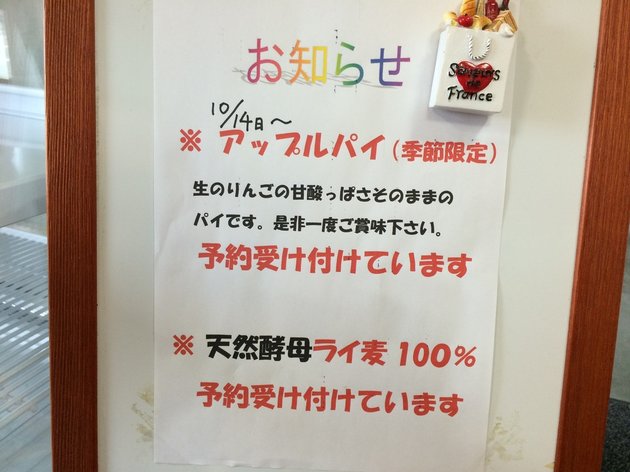 お知らせ
10/14日〜
※ アップルパイ（季節限定）
生のりんごの甘酸っぱさそのままの
パイです。是非一度ご賞味下さい。
予約受け付けています
※ 天然酵母ライ麦 100%
予約受け付けています
Souvenirs
de
France